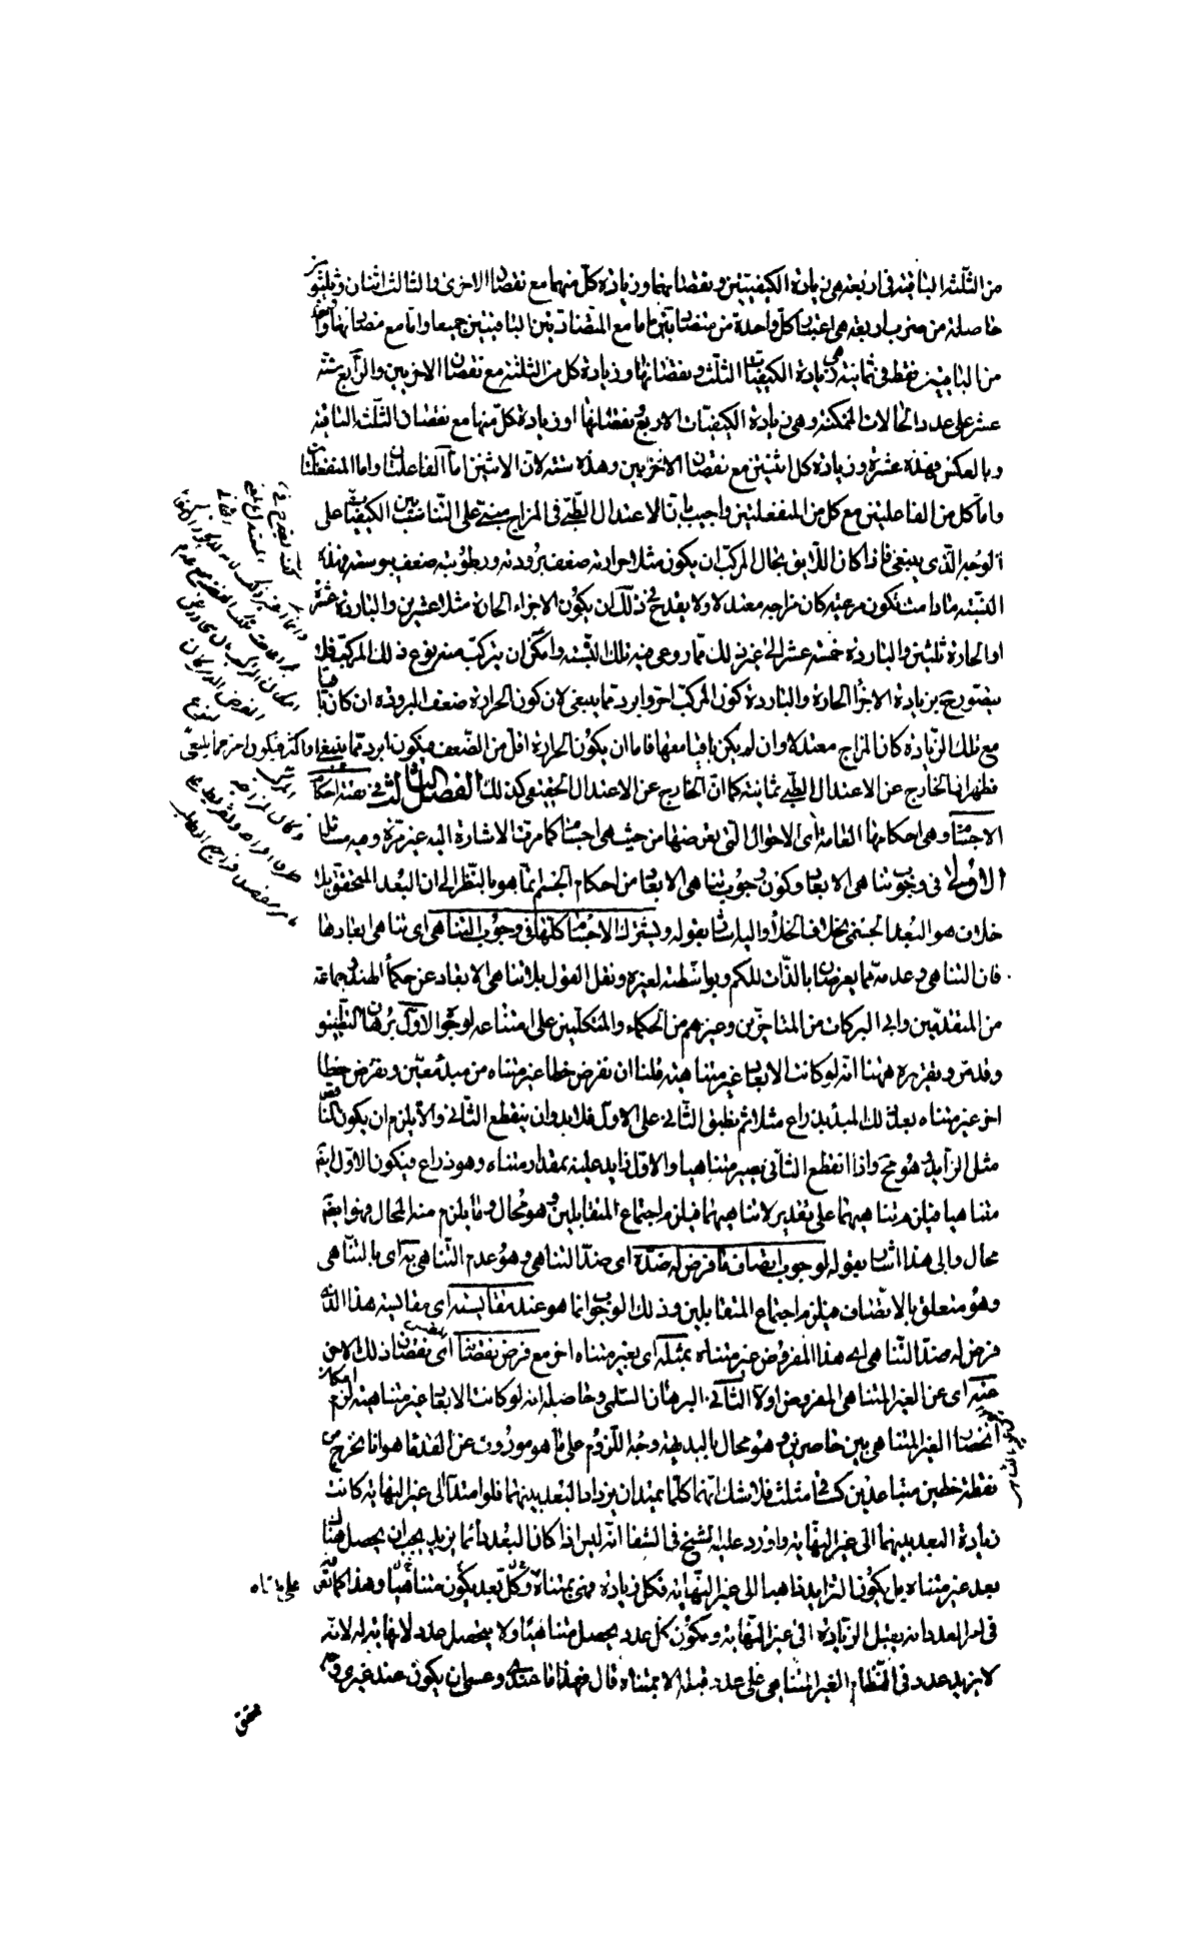 من الثلثة الباقية فى اربعة هى زيادة الكيفيتين ونقصانهما وزيادة كل منهما مع نقصان الاخرى والثالث اثنان وثلثون
حاصلة من ضرب اربعة هى اعتبار كل واحدة من متضادتين اما مع المتضادتين الباقيتين جميعا واما مع
من الباقيتين فقط فى ثمانية هى زيادة الكيفيات الثلث ونقصانها وزيادة كل من الثلثة مع نقصان الاخريين والرابع ستة
عشر على عدد الحالات الممكنة وهى زيادة الكيفيات الاربع ونقصانها وزيادة كل منها مع نقصان الثلثة الباقية
وبالعكس فهذه عشرة وزيادة كل اثنتين مع نقصان الاخريين وهذه ستة لان الاثنتين اما الفاعلتان واما المنفعلتان
واما كل من الفاعلتين مع كل من المنفعلتين واجيب بان الاعتدال الطبى فى المزاج مبنى على التناسب بين الكيفيات على
الوجه الذى ينبغى فاذا كان اللايق بحال المركب ان يكون مثلا حرارته ضعف برودته ورطوبته ضعف يبوسته فهذه
النسبة ما دامت تكون مرعية كان مزاجه معتدلا ولا يقدح فى ذلك ان يكون الاجزاء الحارة مثلا عشرين والباردة عشرة
او الحارة ثلثين والباردة خمسة عشر الى غير ذلك مما روعى فيه تلك النسبة وامكن ان يتركب منه نوع ذلك المركب فلا
يتصور ح بزيادة الاجزاء الحارة والباردة كون المركب احر وابرد مما ينبغى لان كون الحرارة ضعف البرودة ان كان باقيا
مع تلك الزيادة كان المزاج معتدلا وان لم يكن باقيا معها فاما ان يكون الحرارة اقل من الضعف فيكون ابرد مما ينبغى او اكثر فيكون احر مما ينبغى
فظهر ان الخارج عن الاعتدال الطبى ثمانية كما ان الخارج عن الاعتدال الحقيقى كذلك الفصل الثالث فى بقية احكام
الاجسام وهى احكامها العامة اى الاحوال التى تعرضها من حيث هى اجسام كما مرت الاشارة اليه غير مرة وفيه مسائل
الاولى فى وجوب تناهى الابعاد وكون وجوب تناهى الابعاد من احكام الجسم انما هو بالنظر الى ان البعد المتحقق بلا
خلاف هو البعد الجسمى بخلاف الخلأ واليه اشار بقوله ويشترك الاجسام كلها فى وجوب التناهى اى تناهى ابعادها
فان التناهى وعدمه مما يعرضان بالذات للكم وبواسطته لغيره ونقل القول بلا تناهى الابعاد عن حكمآء الهند وجماعة
من المتقدمين وابى البركات من المتاخرين وغيرهم من الحكماء والمتكلمين على امتناعه لوجوه الاول برهان التطبيق
وقد مر وتقريره ههنا انه لو كانت الابعاد غير متناهية فلنا ان نفرض خطا غير متناه من مبدء معين ونفرض خطا
اخر غير متناه بعد ذلك المبدء بذراع مثلا ثم نطبق الثانى على الاول فلا بد وان ينقطع الثانى والا يلزم ان يكون الناقص
مثل الزايد وهو مح واذا انقطع الثانى يصير متناهيا والاول زايد عليه بمقدار متناه وهو ذراع فيكون الاول ايضا
متناهيا فيلزم تناهيهما على تقدير لا تناهيهما فيلزم اجتماع المتقابلين وهو محال وما يلزم منه المحال فهو ايضا
محال والى هذا اشار بقوله لوجوب اتصاف ما فرض له ضده اى ضد التناهى وهو عدم التناهى به اى بالتناهى
وهو متعلق بالاتصاف فيلزم اجتماع المتقابلين وذلك الوجوب انما هو عند مقايسته اى مقايسة هذا الذى
فرض له ضد التناهى اى هذا المفروض غير متناه بمثله اى بغير متناه اخر مع فرض نقصانه اى نقصان ذلك الاخر
عنه اى عن الغير المتناهى المفروض اولا الثانى البرهان السلمى وحاصله انه لو كانت الابعاد غير متناهية لزم امكان
انحصار الغير المتناهى بين حاصرين وهو محال بالبديهة وجه اللزوم على ما هو موروث عن القدماء هو انا نخرج من
نقطة خطين متباعدين كساقى مثلث فلا شك انهما كلما يمتدان يزداد البعد بينهما فلو امتدا الى غير النهاية كانت
زيادة البعد بينهما الى غير النهاية واورد عليه الشيخ فى الشفا انه ليس اذا كان البعد دائما يزيد يجب ان يحصل هناك
بعد غير متناه بل يكون التزايد ذاهبا الى غير النهاية فكل زيادة فهى بمتناه وكل بعد يكون متناهيا وهذا كما
على متناه
فى امر العدد انه يقبل الزيادة الى غير النهاية ويكون كل عدد يحصل متناهيا ولا يحصل عدد لا نهاية له لانه
لا يزيد عدد فى النظام الغير المتناهى على عدد قبله الا بمتناه قال فهذا ما عندى وعسى ان يكون عند غيرى